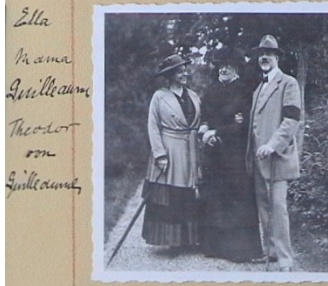 Ella
Mama
Guilleaume
Theodor
von
Guilleaume